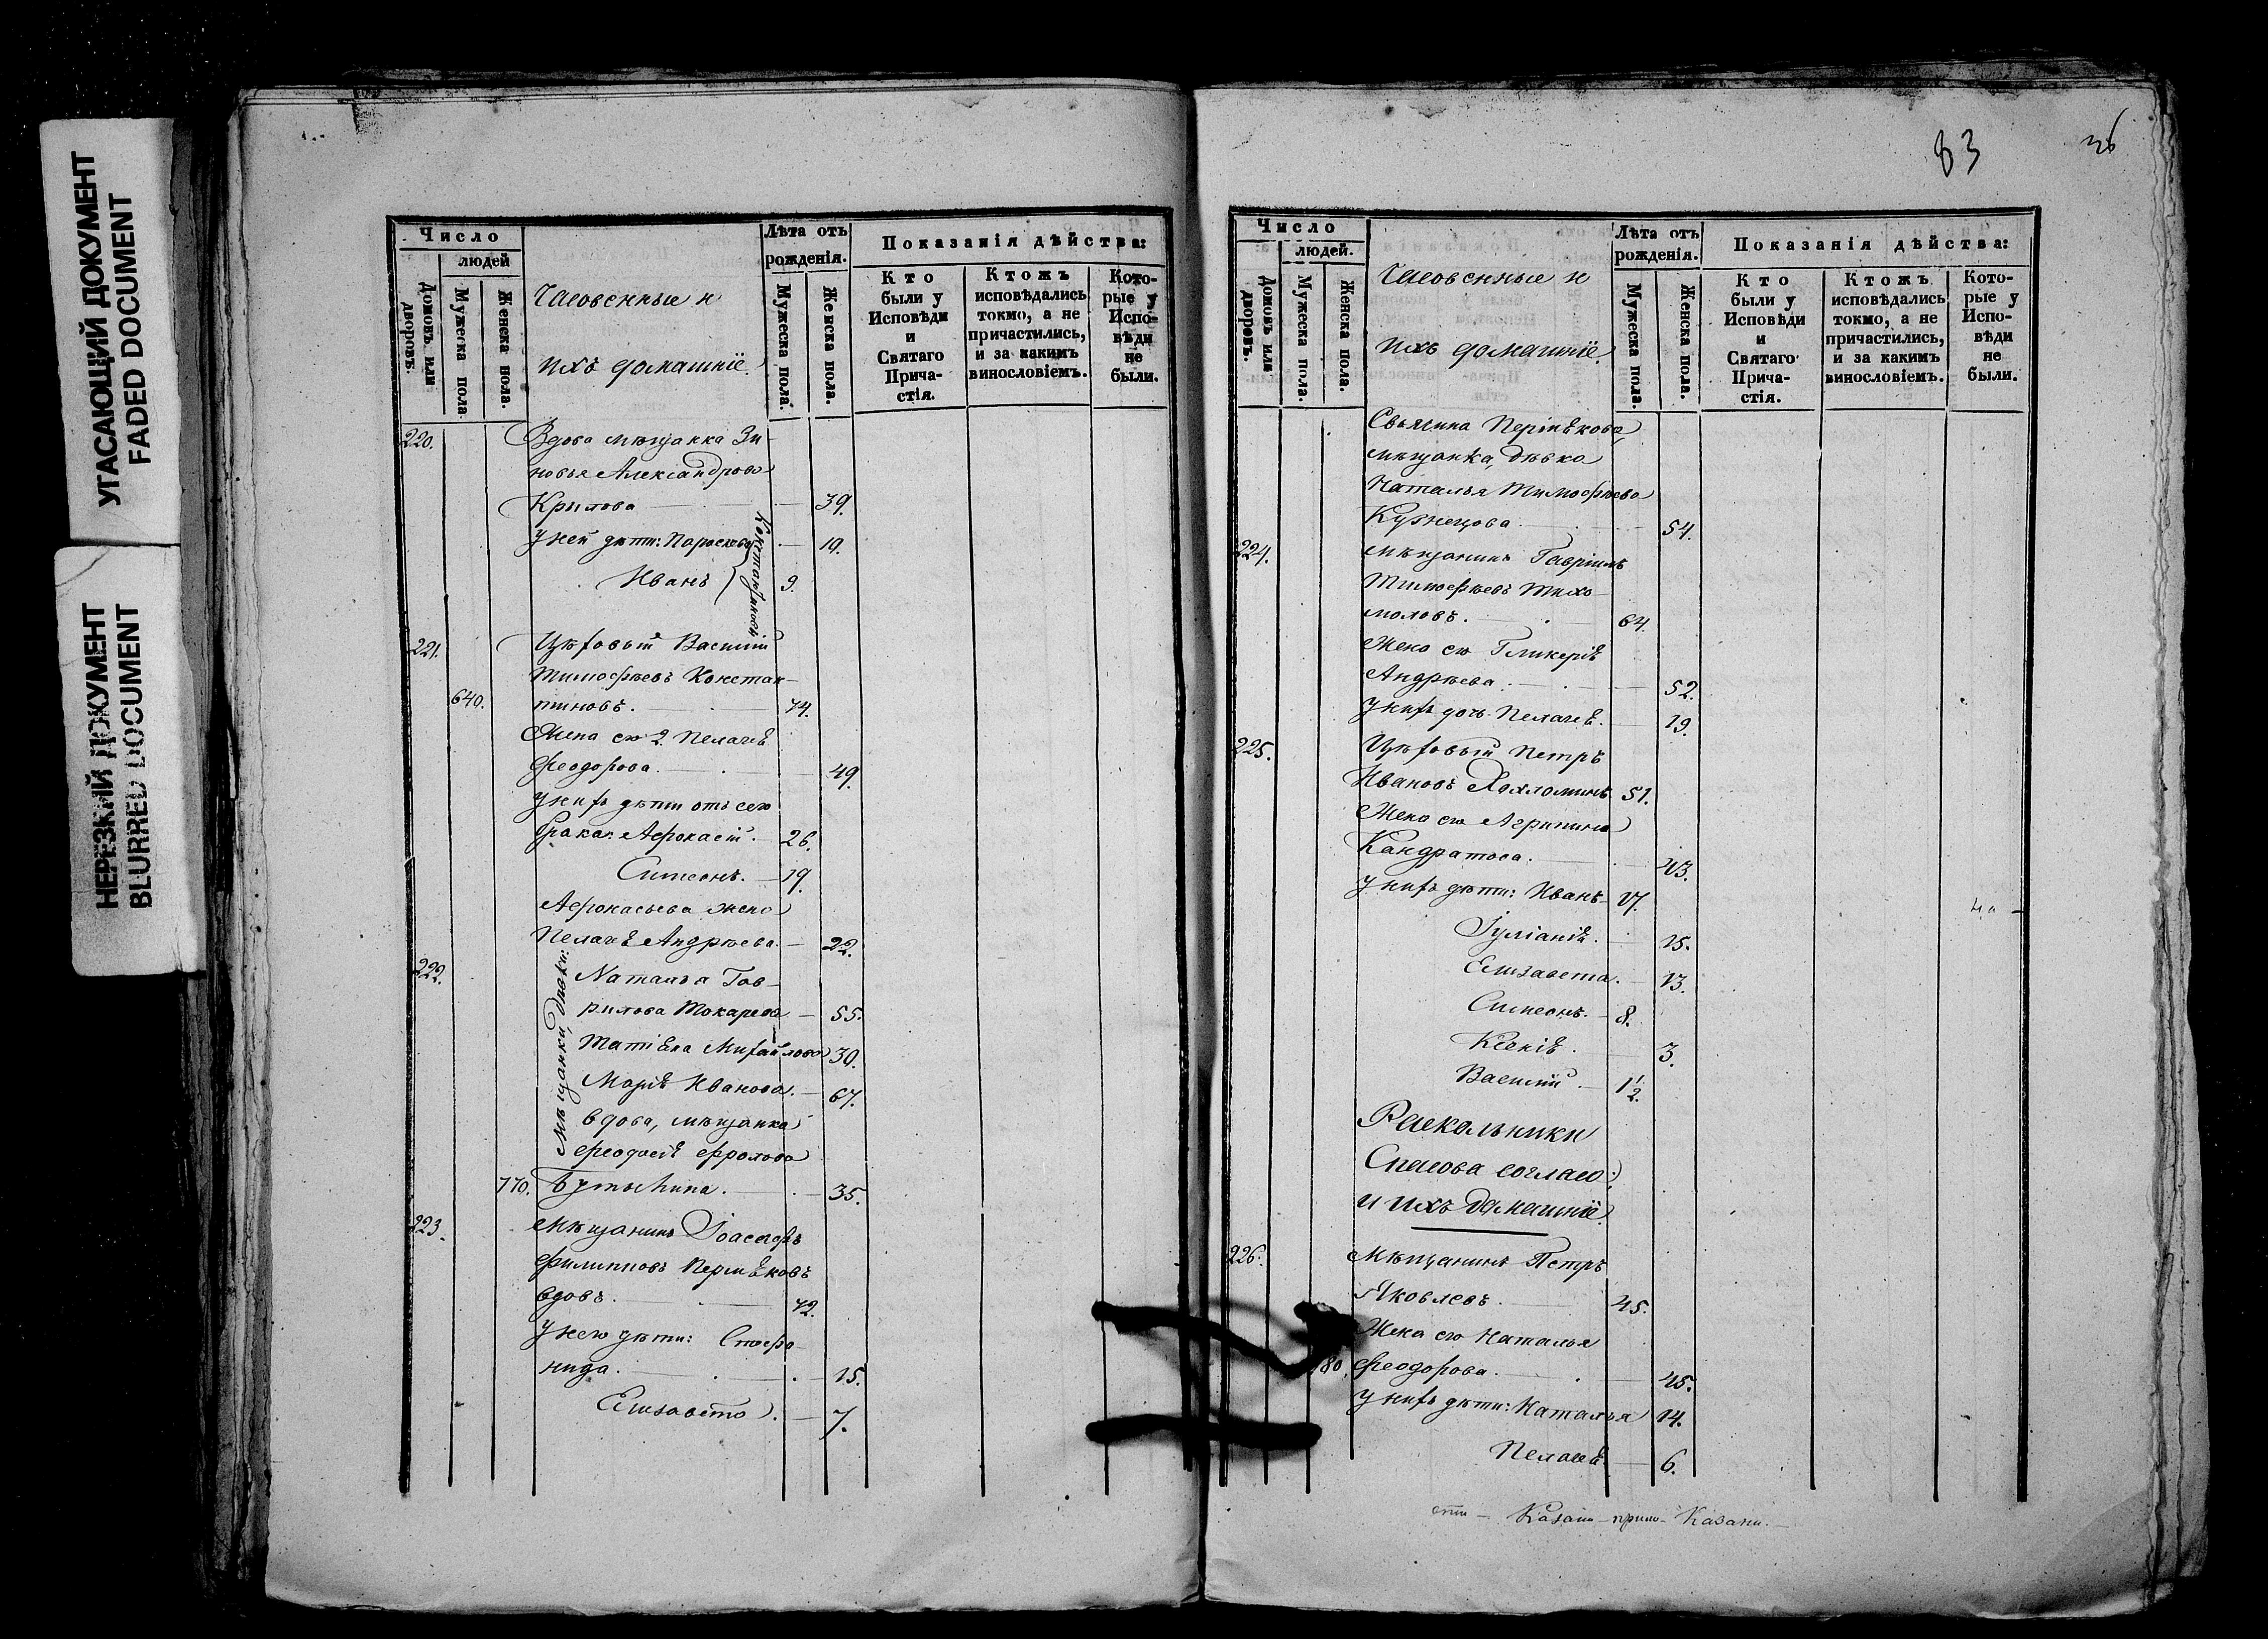 УГАСАЮЩИЙ ДОКУМЕНТ
FADED DOCUMENT
НЕРЕЗКИЙ ДОКУМЕНТ
BLURRED DOCUMENT
Число
людей
Домовъ или дворовъ.
Мужеска пола
Женска пола.
Часовенные и
ихъ домашніе.
Лѣта отъ рожденія.
Мужеска пола.
Женска пола.
Показанія дѣйства:
Кто были у Исповѣди и Святаго Прича-стія.
Ктожъ исповѣдались токмо, а не причастились, и за какимъ винословіемъ.
Кото-рые у Испо-вѣди не были.
220. Вдова мѣщанка Зи-
новья Александрова
Крылова 39.
У ней дѣти: Параскева 19.
Иванъ 9.
221. Цѣховый Василій
Тимофѣевъ Констан-
640. тиновъ. 74.
Жена его 2. Пелагеѣ
Феодорова. 49.
У нихъ дѣти отъ сего
брака: Афонасій. 26.
Симеонъ. 19.
Афонасьева жена
Пелагеѣ Андрѣева. 22.
222. Мѣщанки, дѣвки:
Наталья Гав-
рилова Токарева 55.
Татіѣна Михайлова 30.
Маріѣ Иванова. 67.
вдова, мѣщанка
Феодосіѣ Фролова
770. Бутыгина. 35.
223. Мѣщанинъ Іоасафъ
Филипповъ Першѣковъ
вдовъ. 42.
У него дѣти: Стефа-
нида. 15.
Елизавета. 7.
83
36
Число
людей.
Домовъ или дворовъ.
Мужеска пола.
Женска пола.
Часовенные и
ихъ домашніе.
Лѣта отъ рожденія.
Мужеска пола.
Женска пола.
Показанія дѣйства:
Кто были у Исповѣди и Святаго Прича-стія.
Ктожъ исповѣдались токмо, а не причастились, и за какимъ винословіемъ.
Кото-рые у Испо-вѣди не были.
Першѣкова,
мѣщанка, дѣвка
Наталья Тимофѣева
Кузнецова 54.
224. Мѣщанинъ Гавріилъ
Тимофѣевъ Тихо-
моловъ. 64.
Жена его Гликеріѣ
Андрѣева. 52.
У нихъ дочь Пелагеѣ. 19.
225. Цѣховый Петръ
Ивановъ Хохломинъ 51.
Жена его Агрипина
Кандратова. 43.
У нихъ дѣти: Иванъ 17.
Іуліаніѣ. 15.
Елизавета. 13.
Симеонъ. 8.
Ксеніѣ. 3.
Василій. 1 1/2.
Раскольники
Спасова соглас:
и ихъ домашніе.
226. Мѣщанинъ Петръ
Яковлевъ. 45.
Жена его Наталья
Феодорова. 45.
У нихъ дѣти: Наталья 14.
Пелагеѣ 6.
Казани